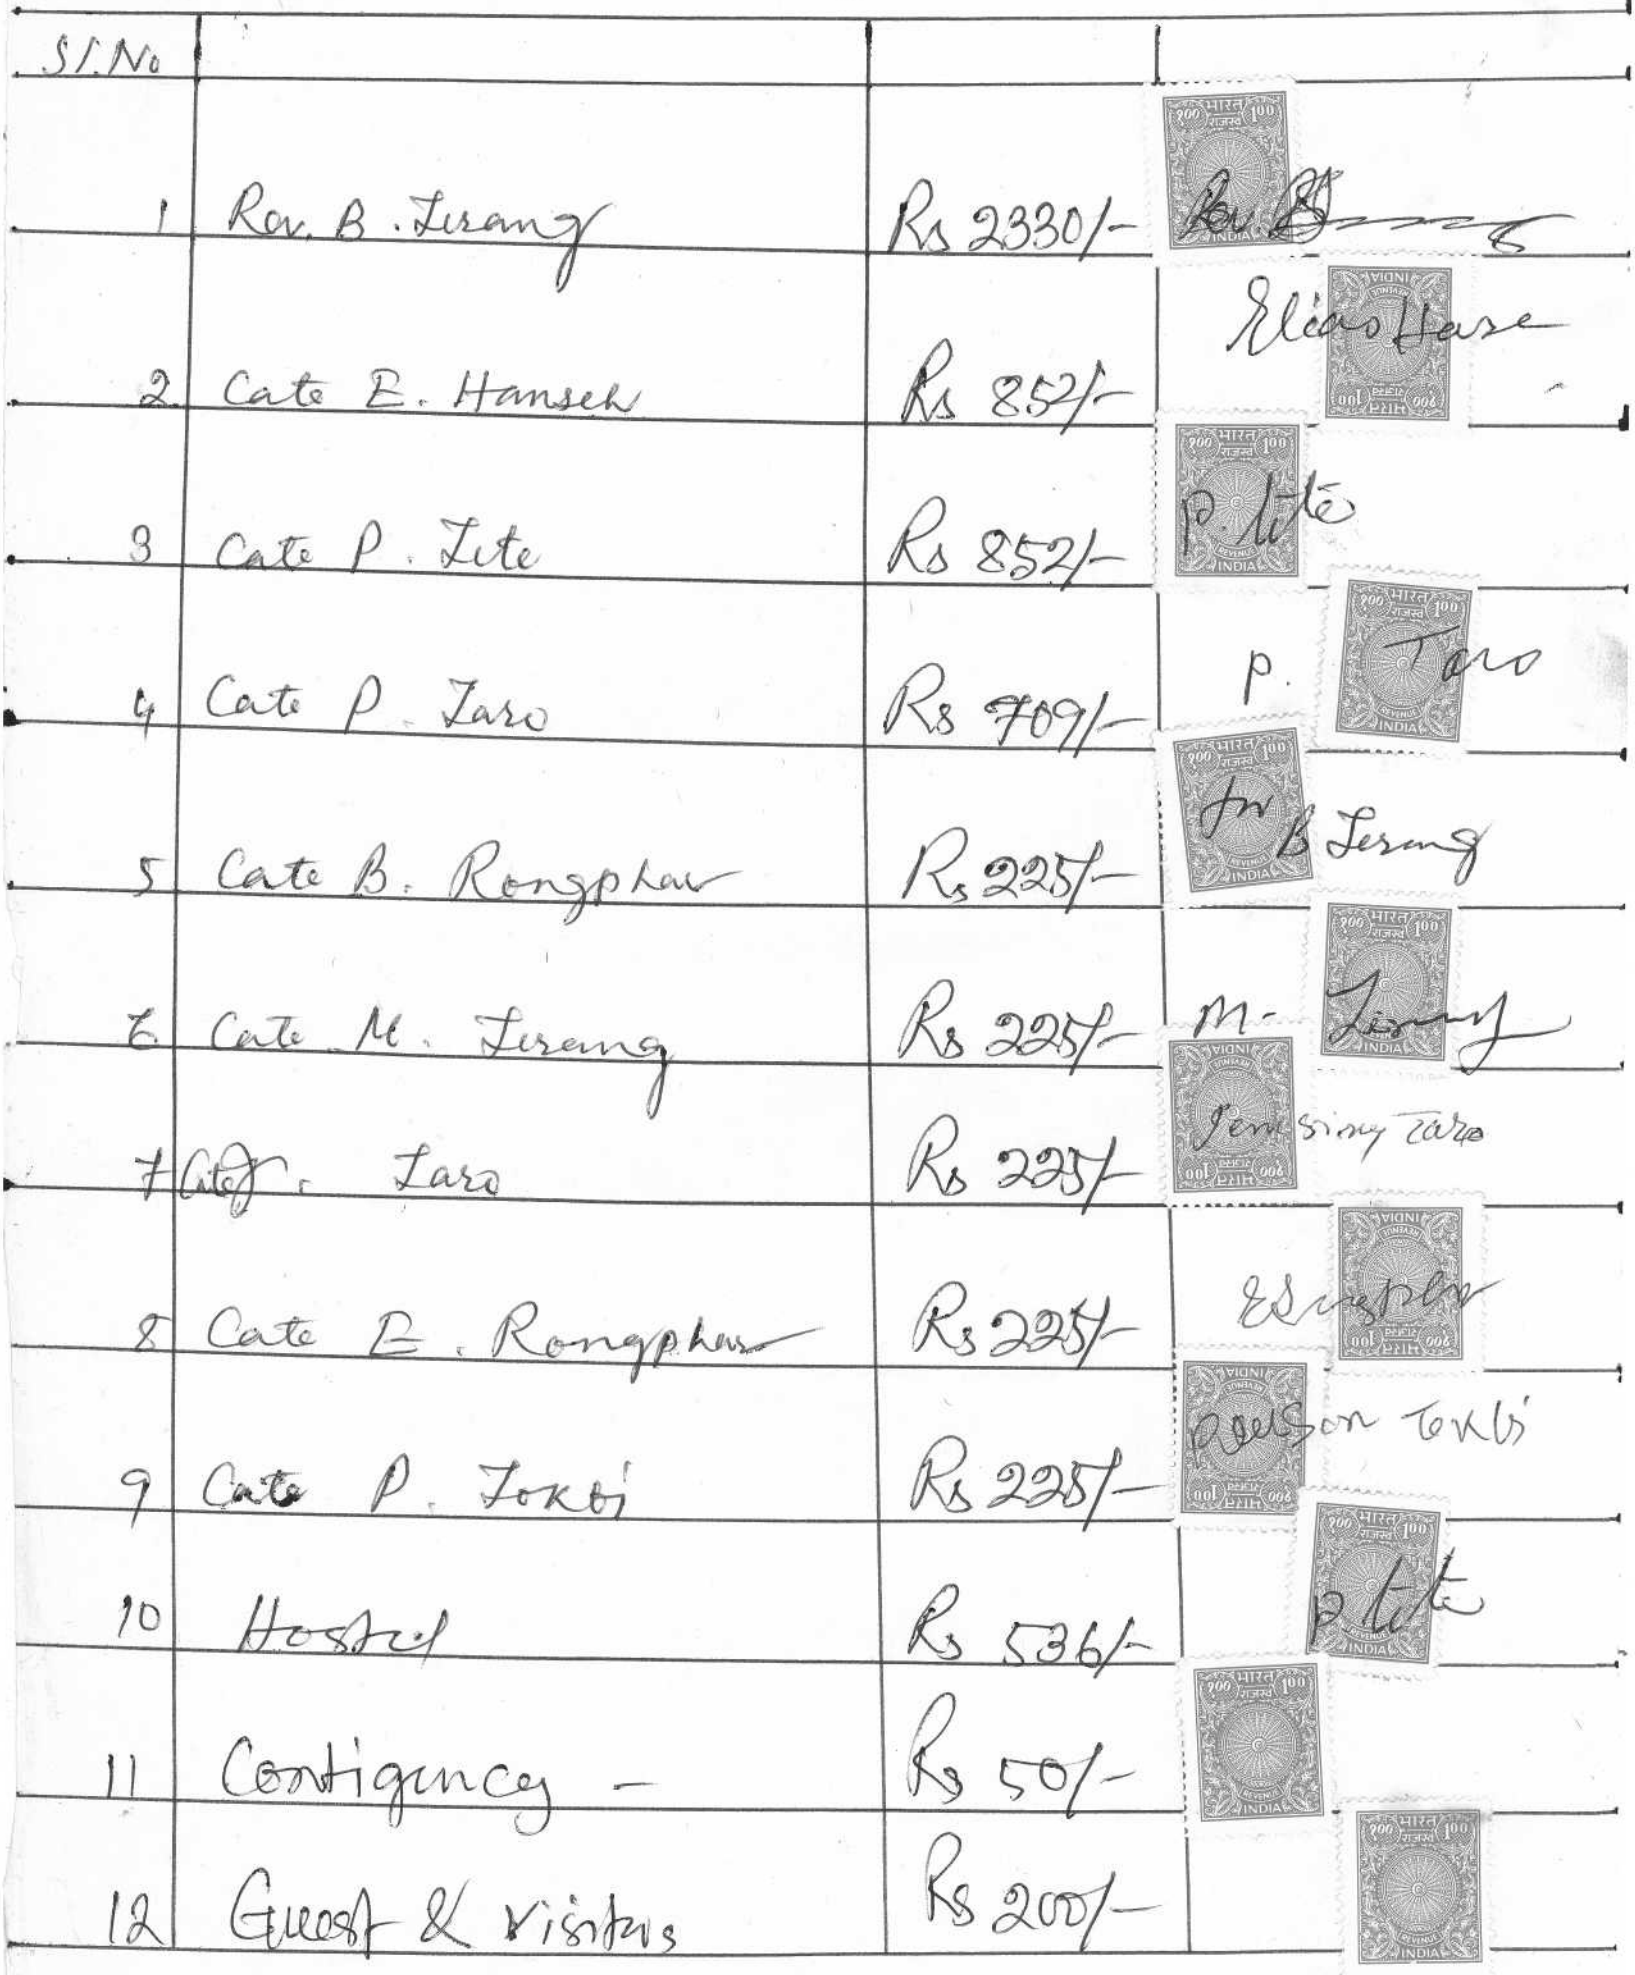 Sl.No
1 Rev. B. Terang Rs 2330/- Rev. B
2. Cate E. Hanseh Rs 852/- Elias Hanse
3 Cate P. Tete Rs 852/- P. tete
4 Cate P. Taro Rs 709/- P. Taro
5 Cate B. Rongphar Rs 225/- for B Terang
6 Cate M. Terang Rs 225/- M. Terang
7 Cate J. Taro Rs 225/- Jemsing Taro
8 Cate E. Rongphar Rs 225/-
9 Cate P. Tokbi Rs 225/- Tokbi
10 Hostel Rs 536/- P tete
11 Contigency - Rs 50/-
12 Guest & visitors Rs 200/-
भारत
राजस्व
१०० 100
REVENUE
INDIA